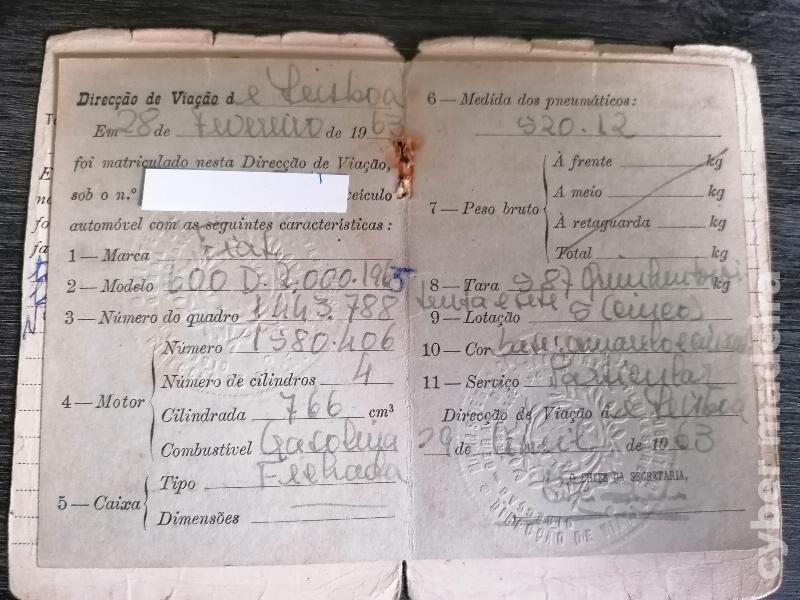 Direcção de Viação de Lisboa
Em 28 de Fevereiro de 1963
foi matriculado nesta Direcção de Viação,
sob o n.º veículo
automóvel com as seguintes características:
1 — Marca Fiat
2 — Modelo 600 D.
3 — Número do quadro 1443.788
4 — Motor
Número 1580.406
Número de cilindros 4
Cilindrada 766 cm³
Combustível Gasolina
5 — Caixa
Tipo Fechada
Dimensões
6 — Medida dos pneumáticos:
520.12
7 — Peso bruto
À frente kg
A meio kg
À retaguarda kg
Total kg
8 — Tara 587 kg
9 — Lotação 5 (cinco)
10 — Cor
11 — Serviço Particular
Direcção de Viação de Lisboa
29 de Abril de 1963
O CHEFE DA SECRETARIA,
cyber madeira